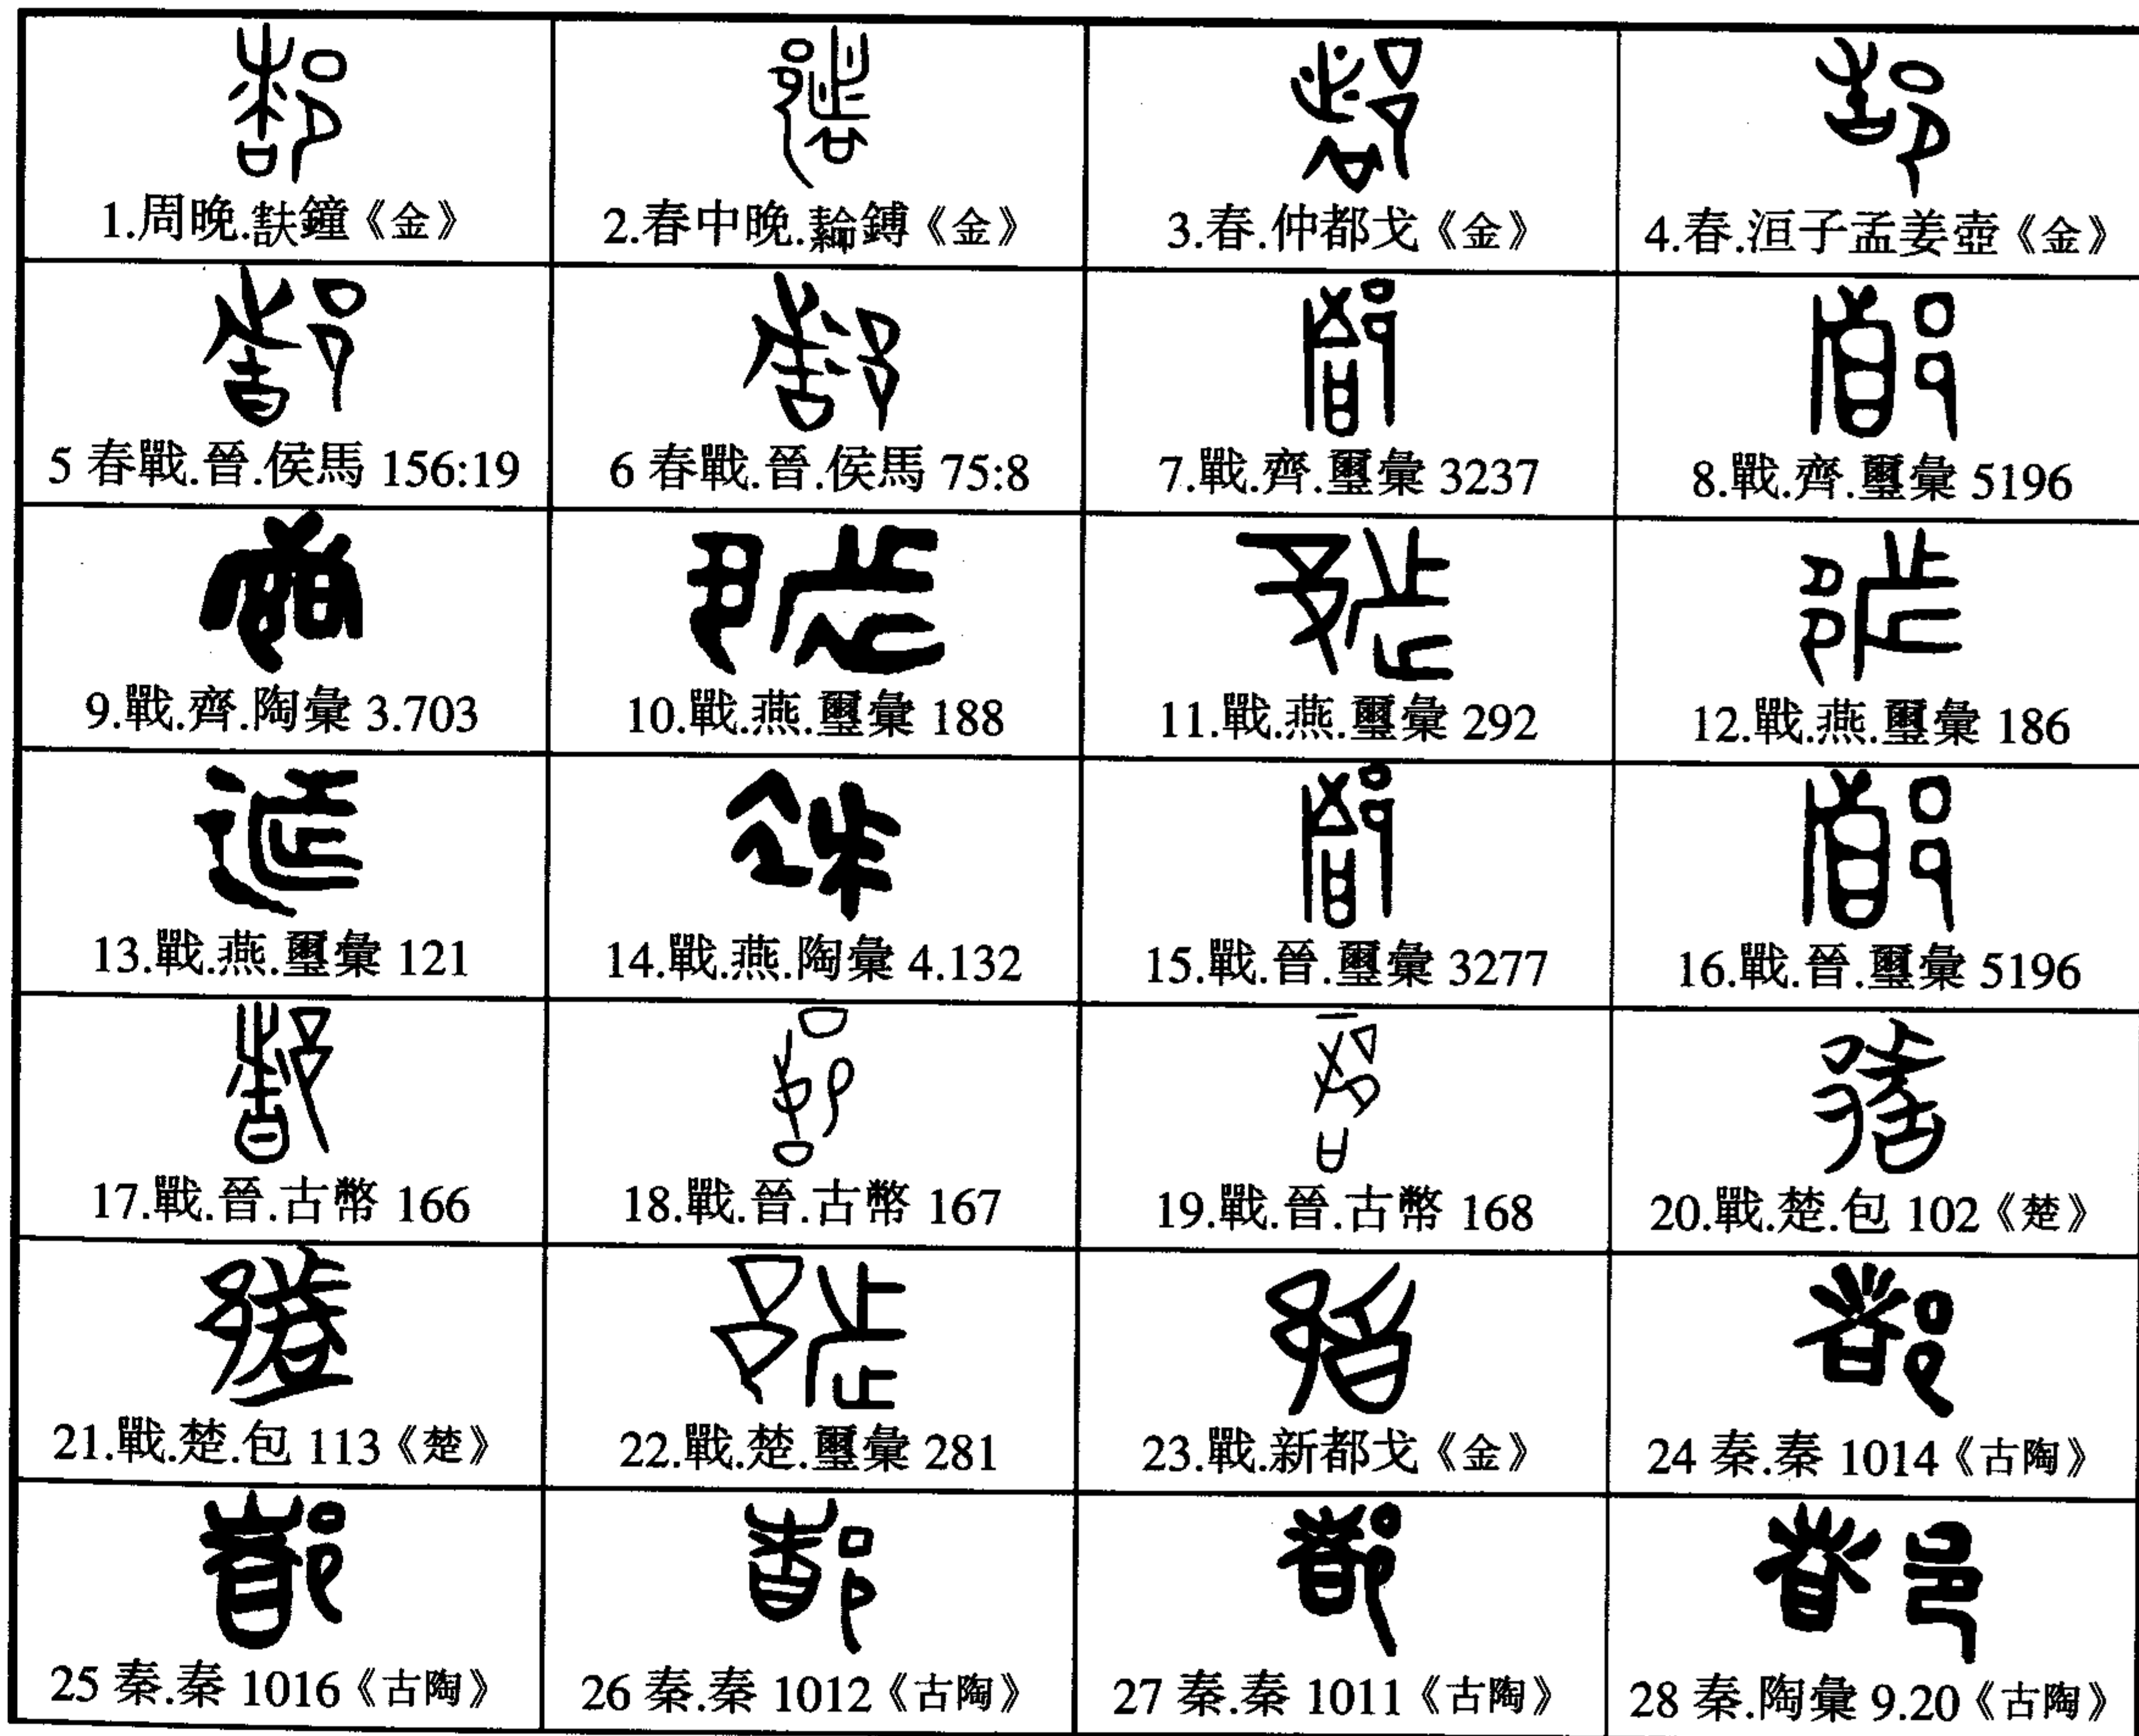 1.周晚.㝬鐘《金》
2.春中晚.𦅫鎛《金》
3.春.仲都戈《金》
4.春.洹子孟姜壺《金》
5 春戰.晉.侯馬 156:19
6 春戰.晉.侯馬 75:8
7.戰.齊.璽彙 3237
8.戰.齊.璽彙 5196
9.戰.齊.陶彙 3.703
10.戰.燕.璽彙 188
11.戰.燕.璽彙 292
12.戰.燕.璽彙 186
13.戰.燕.璽彙 121
14.戰.燕.陶彙 4.132
15.戰.晉.璽彙 3277
16.戰.晉.璽彙 5196
17.戰.晉.古幣 166
18.戰.晉.古幣 167
19.戰.晉.古幣 168
20.戰.楚.包 102《楚》
21.戰.楚.包 113《楚》
22.戰.楚.璽彙 281
23.戰.新都戈《金》
24 秦.秦 1014《古陶》
25 秦.秦 1016《古陶》
26 秦.秦 1012《古陶》
27 秦.秦 1011《古陶》
28 秦.陶彙 9.20《古陶》